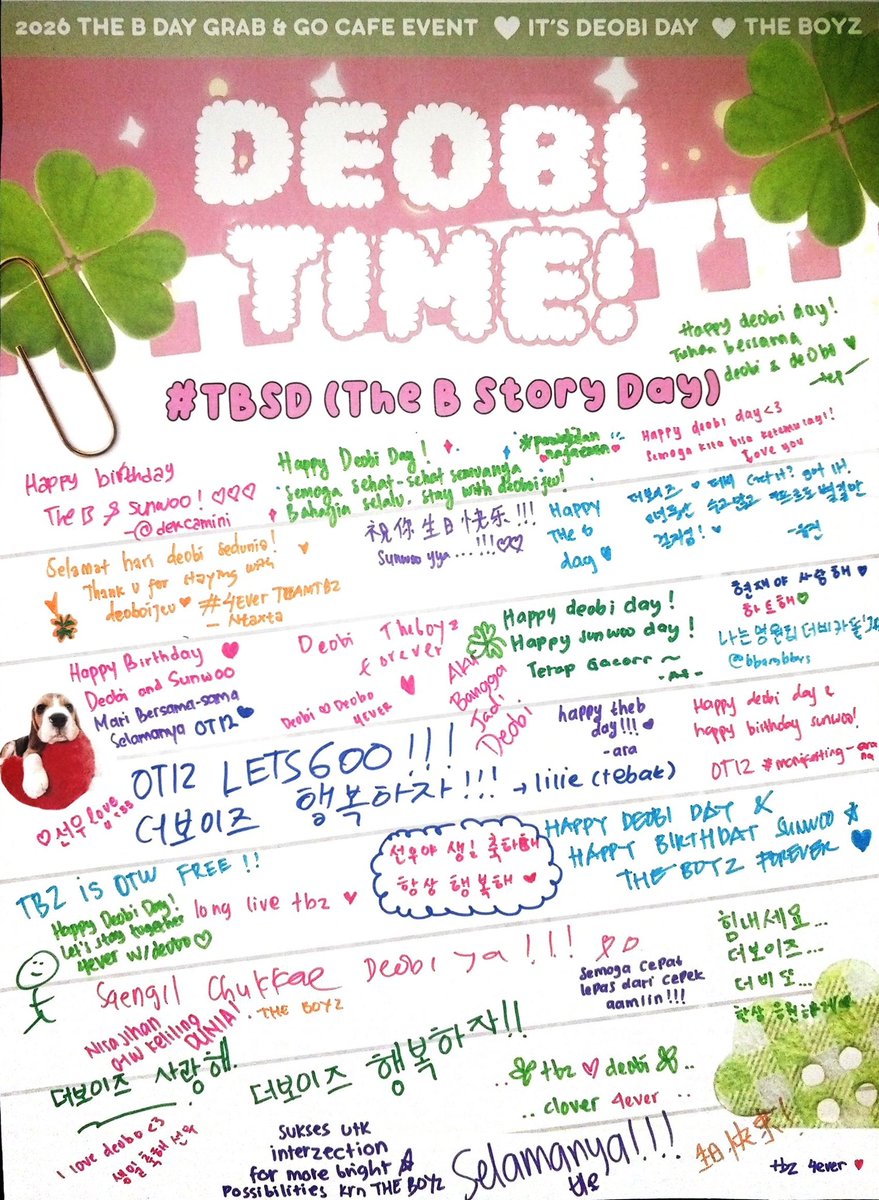 2026 THE B DAY GRAB & GO CAFE EVENT ♥ IT'S DEOBI DAY ♥ THE BOYZ
DEOBI
TIME!
#TBSD (The B Story Day)
Happy deobi day!
Tuhan bersama
deobi & deobo ♥
Happy birthday
The B & Sunwoo! ♡♡♡
-@dekcamini
Happy Deobi Day!
Semoga sehat-sehat semuanya
Bahagia selalu, stay with deoboijeu!
Happy deobi day<3
Semoga kita bisa ketemu lagi!
Love you
祝你生日快乐!!!
Sunwoo yya...!!!♡♡
Happy
The B
day ♥
더보이즈 ♥ 더비 Catch? got it!
걷자잉! ♥
Selamat hari deobi sedunia!
Thank u for staying with
deoboijeu ♥ #4EVER TBZAMTBZ
- Ntaxta
현재야 사랑해 ♥
하트해♡
나는 영원팁 더비
Happy deobi day!
Happy sunwoo day!
Tetap Gacorr ~
Deobi Theboyz
forever
Deobi ♡ Deobo
4EVER
Happy Birthday
Deobi and Sunwoo
Mari Bersama-sama
Selamanya OT12 ♥
Aku
Bangga
Jadi
Deobi
happy theb
day!!! ♥
-ara
Happy deobi day &
happy birthday sunwoo!
OT12
OT12 LETS GOO!!!
더보이즈 행복하자!!! → lilie (tebak)
♡선우 love
TBZ IS OTW FREE!!
선우야 생일 축하해
항상 행복해 ♥
HAPPY DEOBI DAY &
HAPPY BIRTHDAY SUNWOO ☆
THE BOYZ FOREVER ♥
Happy Deobi Day!
Let's stay together
4ever w/deobo ♡
long live tbz ♥
Saengil Chukkae Deobi ya!!!
THE BOYZ
Semoga cepat
lepas dari cepek
aamiin!!!
힘내세요...
더보이즈...
더비도...
항상 응원하게
Nisa Jihan
OTW keliling
DUNIA!
더보이즈 사랑해
더보이즈 행복하자!!
..tbz ♥ deobi..
..clover 4ever..
I love deobo <3
생일 축해 선우
Sukses utk
interzection
for more bright ☆
Possibilities krn THE BOYZ
Selamanya!!!
tbz 4ever ♥